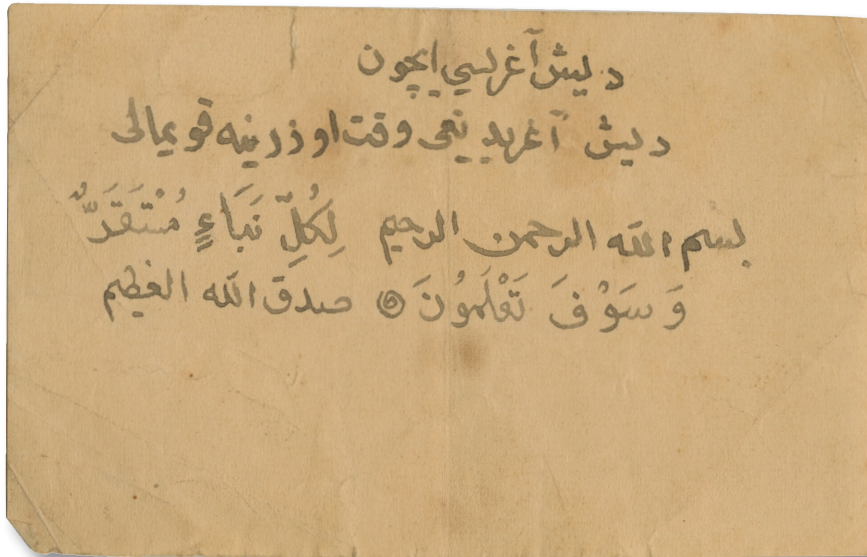 دیش آغرلسی ایچون
دیش آغریدیغی وقت اوزرینه قویمالی
بسم الله الرحمن الرحيم لِكُلِّ نَبَاءٍ مُسْتَقَرٌّ
وَسَوْفَ تَعْلَمُونَ ۝ صدق الله العظيم